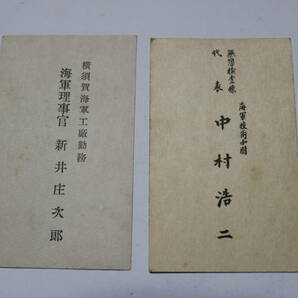 横須賀海軍工廠勤務
海軍理事官 新井庄次郎
無際検査係
代表 中村浩二
海軍技術少尉